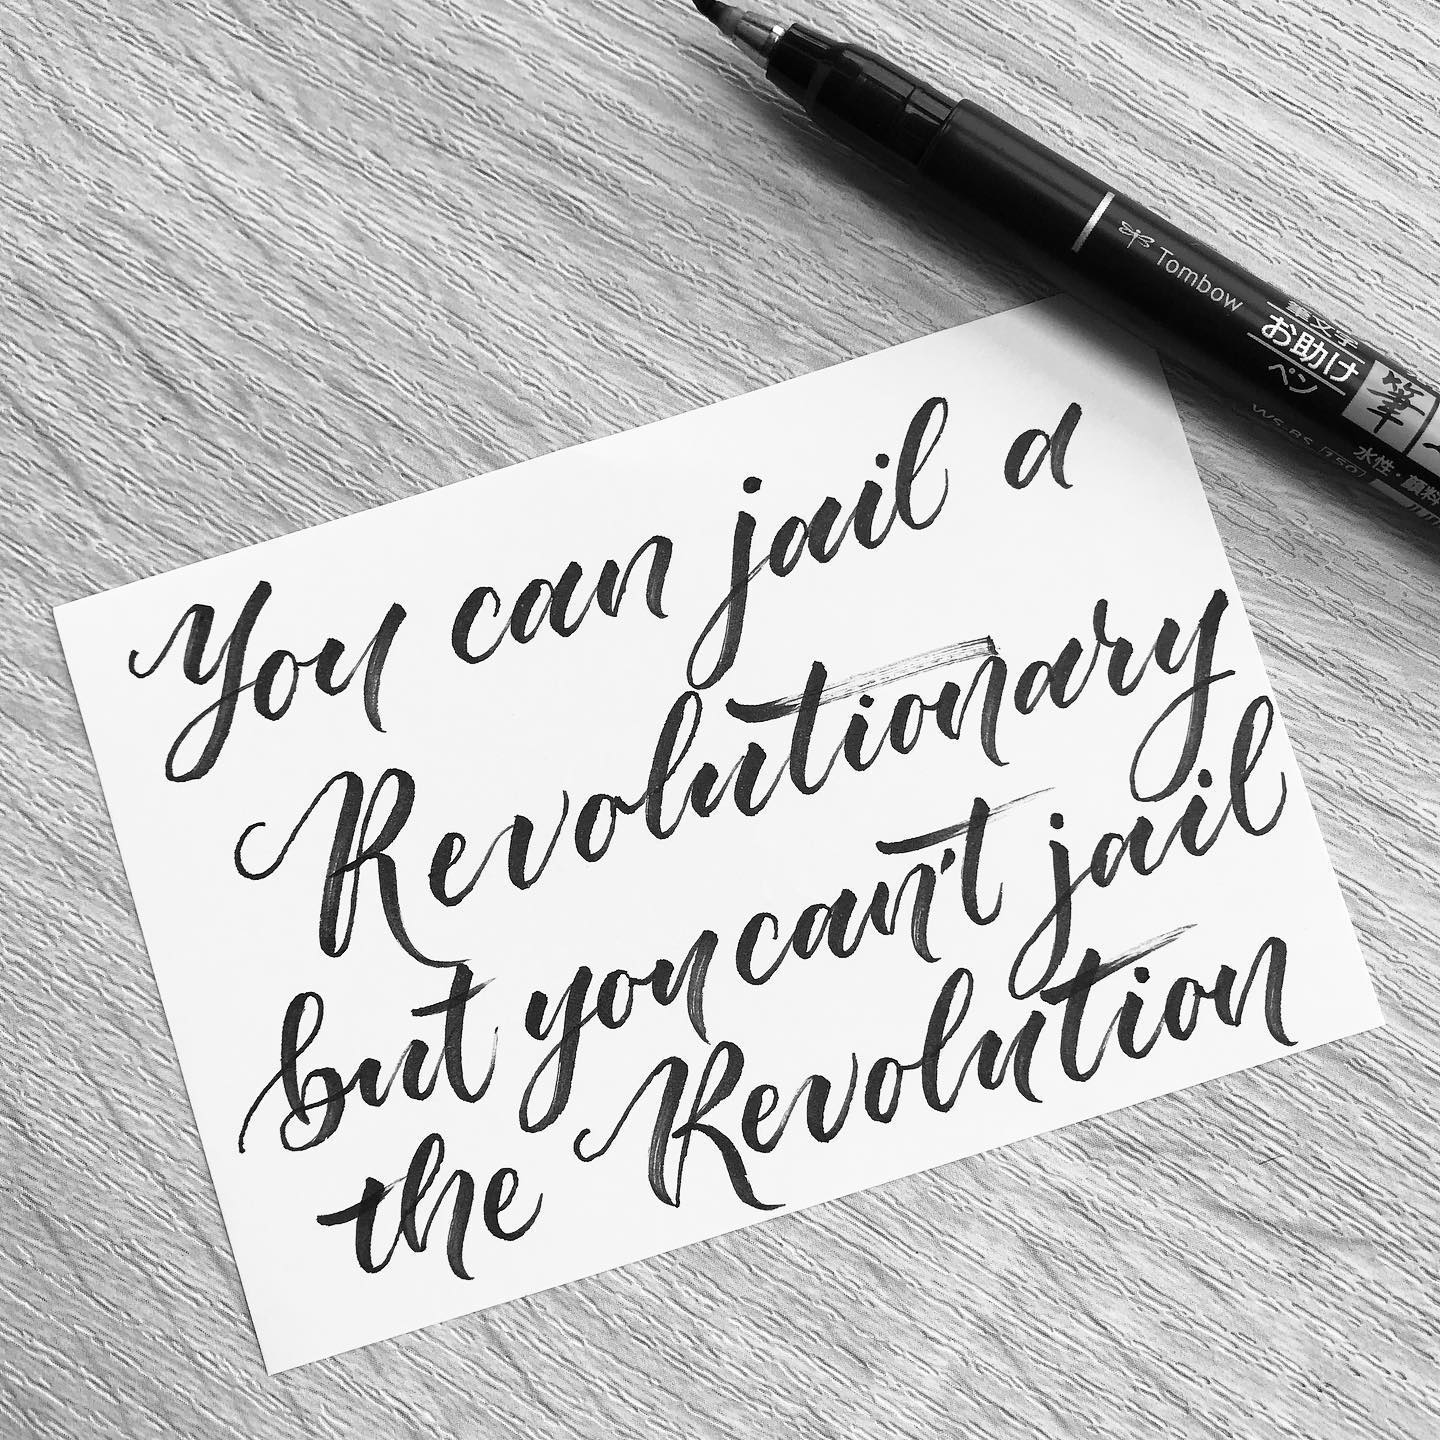 Tombow
筆文字
お助け
ペン
筆
WS-BS 150
水性・顔料
You can jail a
Revolutionary
but you can't jail
the Revolution